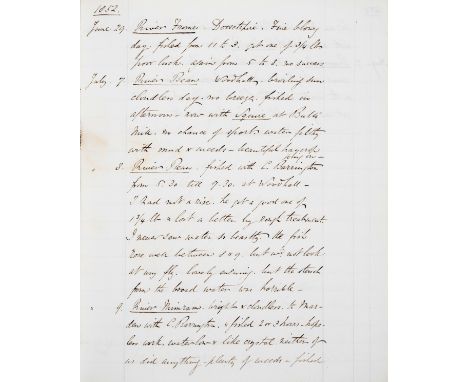 1852.
June 29. River Frome - Dorsetshire. Fine blowy
day, fished from 11 to 3. got one of 3/4 lb
poor luck. again from 5 to 8. no success
July 7. River Beane Woodhall - broiling sun
cloudless day - no breeze. fished in
afternoon - now with Squire at Bulls
Mill. no chance of sport. water filthy
with mud & weeds - beautiful haycrop
going on -
8. River Beane - fished with C. Barrington
from 5.30 till 9.30. at Woodhall -
I had not a rise. he got a good one of
1 3/4 lb & lost a better by rough treatment.
I never saw water so beastly. the fish
rose well between 8 & 9. but wd. not look
at any fly. lovely evening. but the stench
from the broad water was horrible -
" 9. River Mimram. bright & cloudless. to
with C. Barrington. & fished 2 or 3 hours - hope-
less work. water low & like crystal neither of
us did anything - plenty of weeds - fished